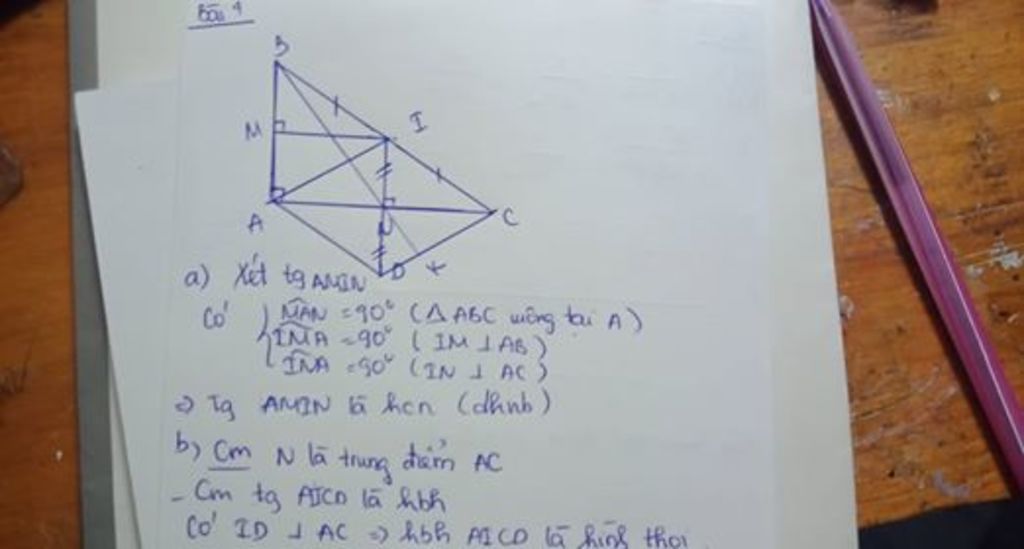 Bài 4
B
M
I
A
N
C
D
K
a) Xét tg AMIN
Có
MAN = 90° (△ABC vuông tại A)
IMA = 90° (IM ⊥ AB)
INA = 90° (IN ⊥ AC)
=> Tg AMIN là hcn (dhnb)
b) Cm N là trung điểm AC
- Cm tg AICD là hbh
Có ID ⊥ AC => hbh AICD là hình thoi.